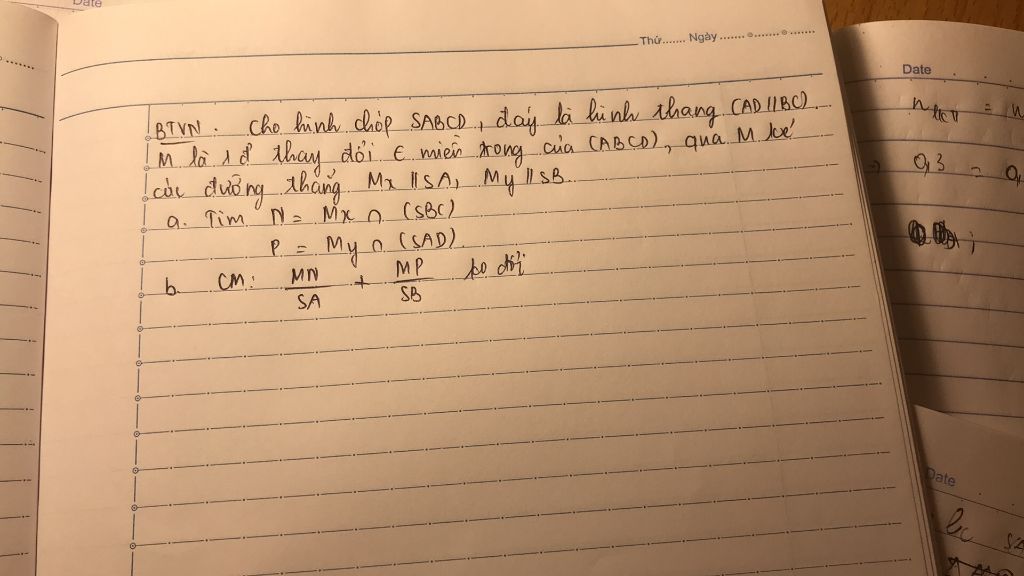 Date
Thứ....... Ngày .......
BTVN. Cho hình chóp SABCD, đáy là hình thang (AD//BC).
M là 1 đ thay đổi ∈ miền trong của (ABCD), qua M kẻ
các đường thẳng Mx // SA, My // SB.
a. Tìm N = Mx ∩ (SBC)
P = My ∩ (SAD).
b. CM: MN/SA + MP/SB ko đổi
Date
= n
0,3 = 0,
Date